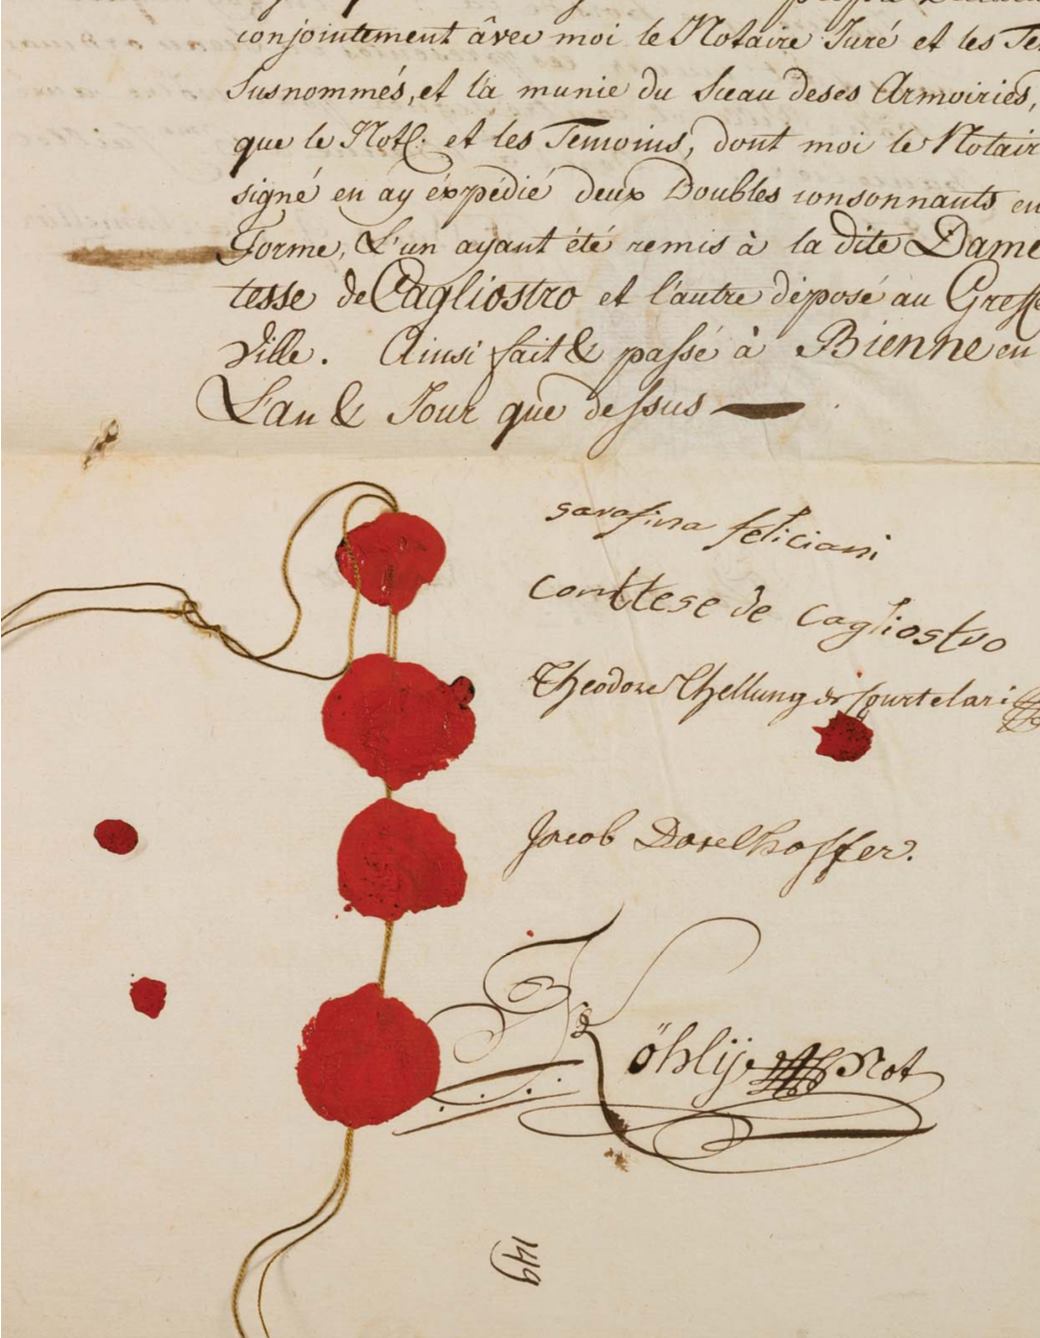 conjointement âvec moi le Notaire Juré et les Te
Susnommés, et la munie du Sceau deses Armoiries,
que le Not. et les Temoins, dont moi le Notair
signé en ay éxpédié deux Doubles consonnants en
Forme, L'un ayant été remis à la dite Dame
tesse de Cagliostro et l'autre déposé au Greffe
Ville. Ainsi fait & passé à Bienne en
L'an & Jour que dessus
sarafina feliciani
comttese de cagliostro
Theodore Chellung de Courtelari
Jacob Daxelhoffer.
Köhlij Not
149